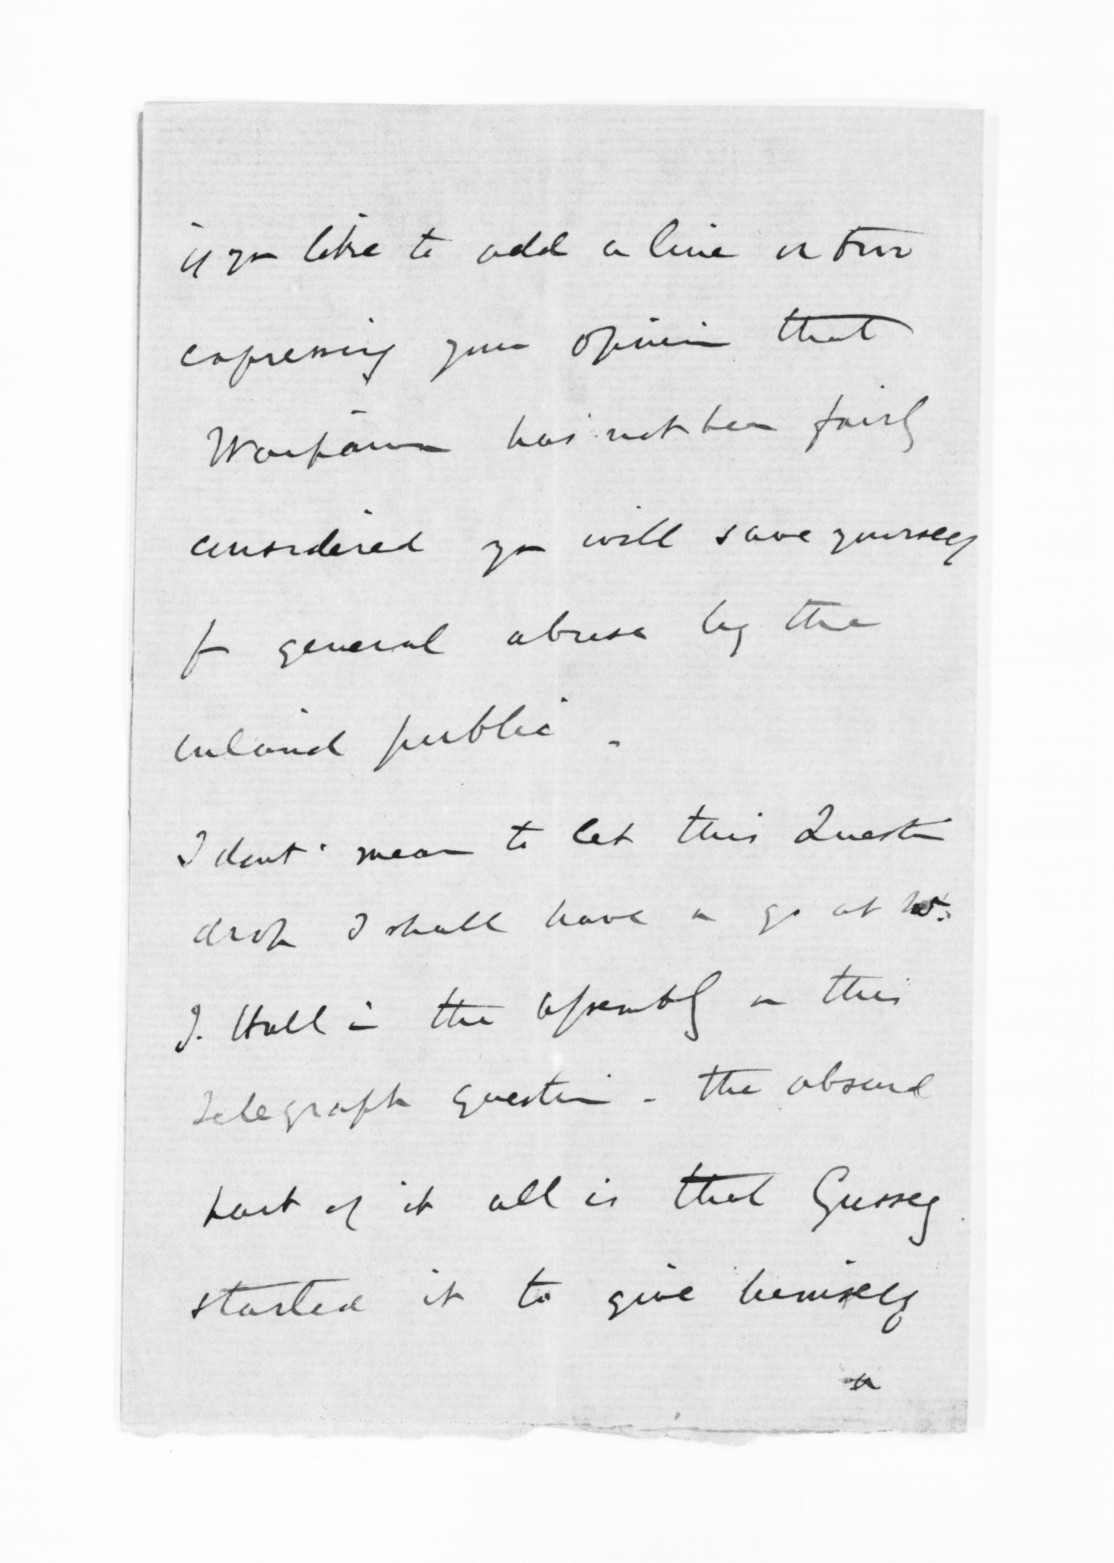 if you like to add a line or two
expressing your opinion that
Waipawa has not been fairly
considered you will save yourself
fm general abuse by the
inland public.
I dont mean to let this Questn
drop I shall have a go at W.
J. Hall in the Assembly on this
Telegraph question - the absurd
part of it all is that Gussey
started it to give himself
a